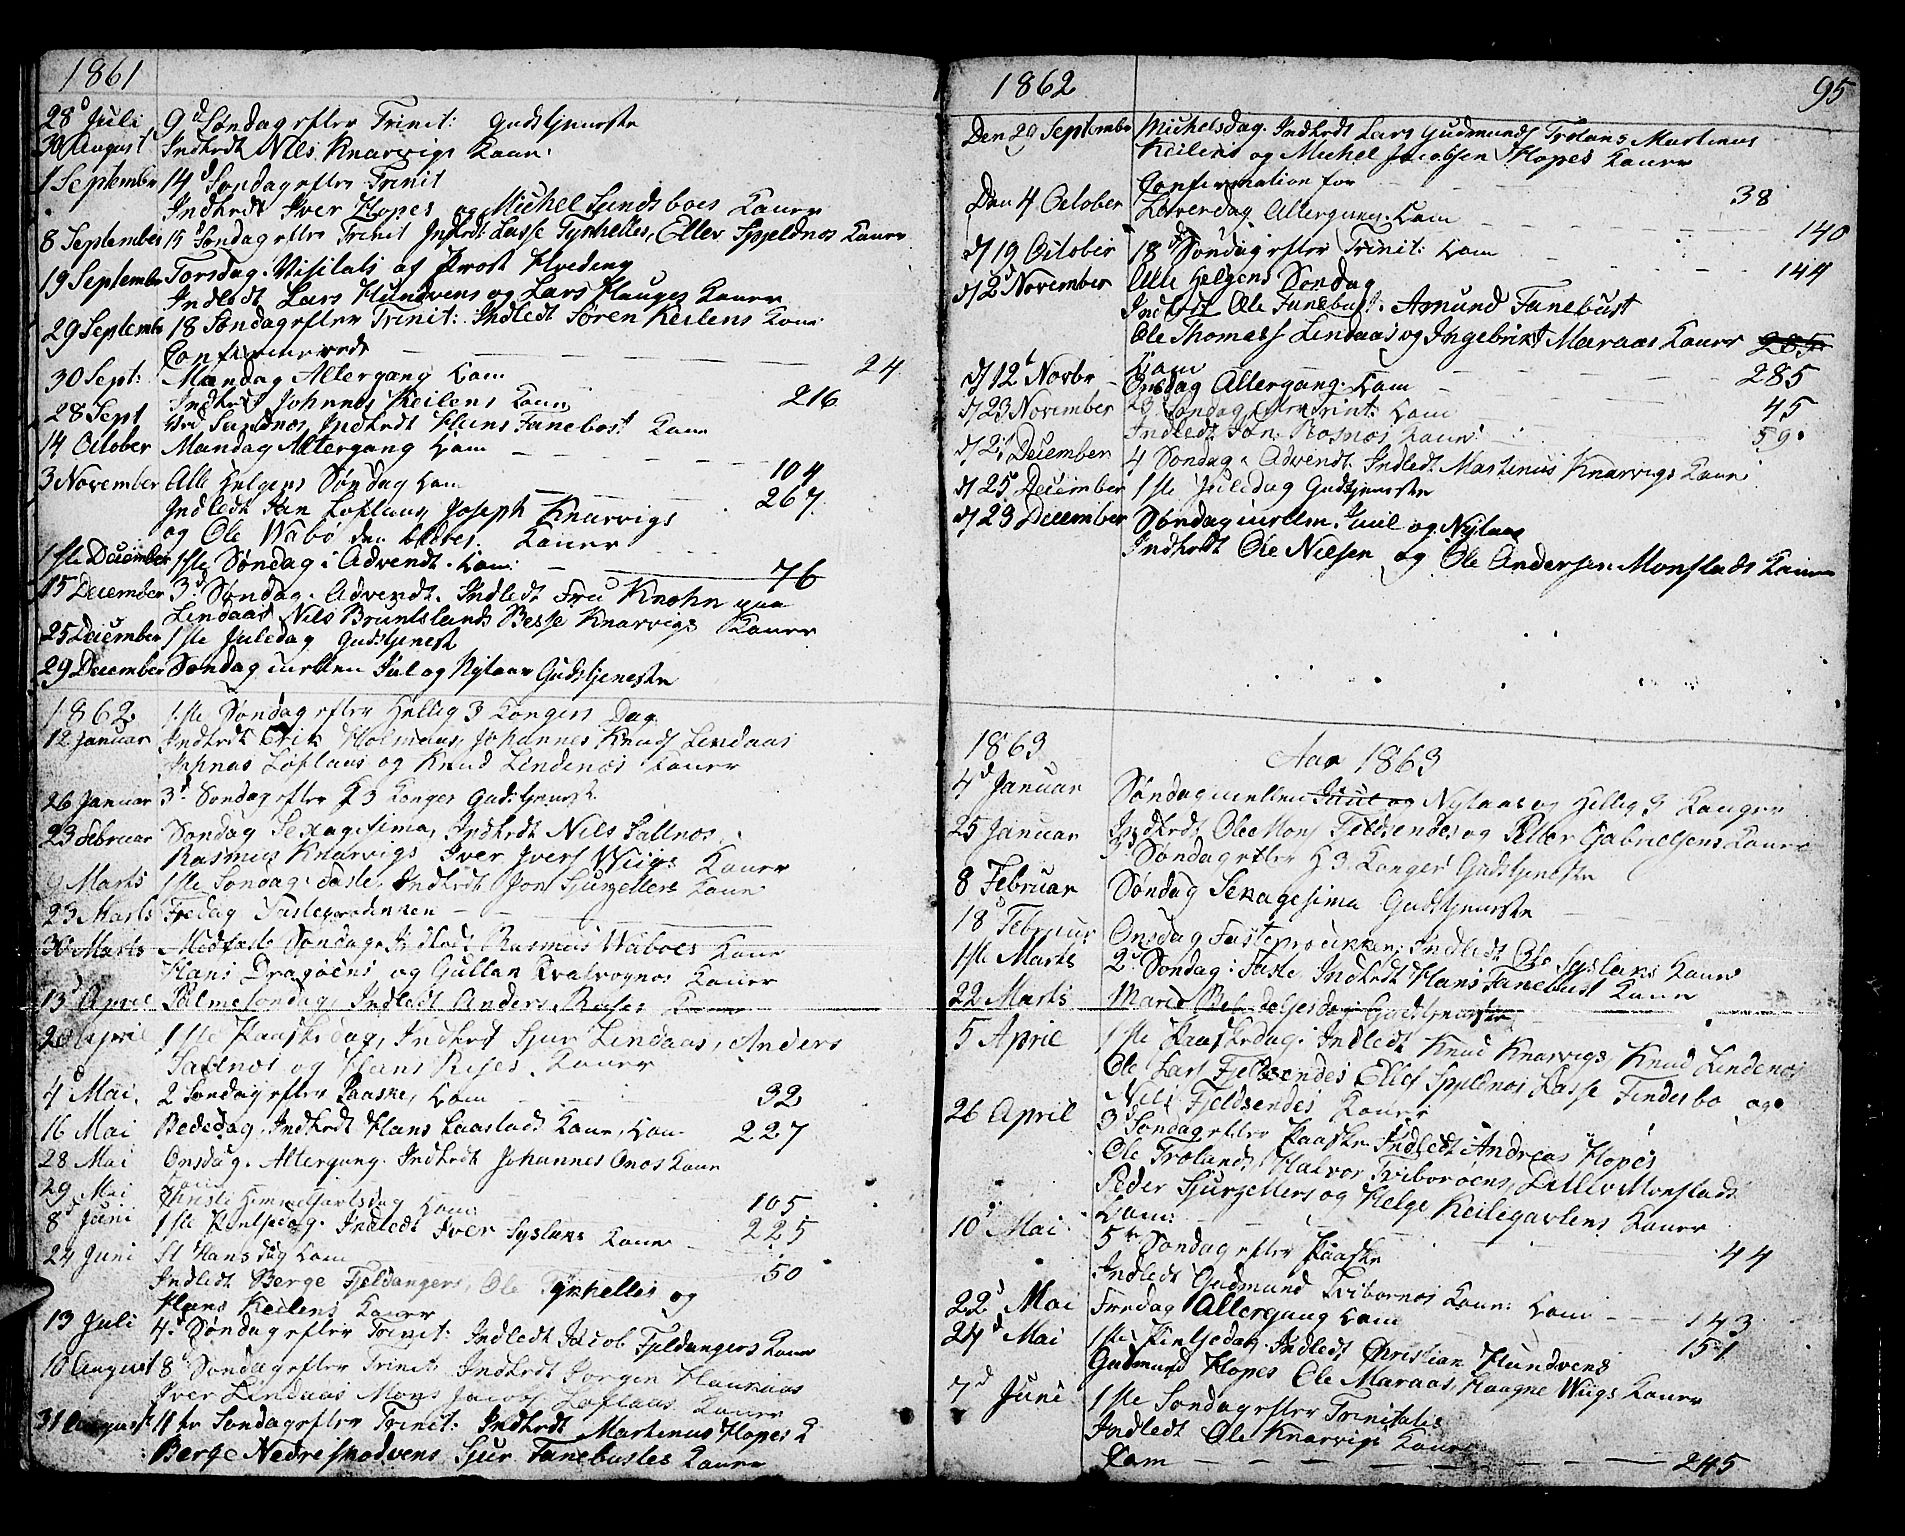 1861
28d Juli 9d Søndag efter Trinit: Gudstjeneste
30 August Indledt Nils Knarvigs Kone
1 September 14d Søndag efter Trinit
Indledt Iver Hopes og Michel Sundsboes Koner
8 September 15d Søndag efter Trinit Indledt Lasse Tyrhelles, Eller Spjeldnes Koner
19 September Torsdag. Visitats af Prost Hveding
Indledt Lars Hundvens og Lars Hauges Koner
29 Septemb 18 Søndag efter Trinit: Indledt Sören Keilens Kone
Confirmerede 24
30 Sept: Mandag Altergang Com 216
Indledt Johnnes Keilens Kone
28 Sept Ved Sundnes Indledt Hans Fanebost Kone
14 October Mandag Altergang Com 104
3 November Alle Helgens Søndag Com 267
Indledt Jan Loflaas, Joseph Knarvigs
og Ole Wabø Koner
1ste December 1ste Søndag i Advendt. Com: 76
15 December 3d Søndag. Advendt. Indledt Fru Knohn paa
Lindaas Nils Bruntslands Besse Knarvigs Koner
25 December 1ste Juledag Gudstjenest
29 December Søndag mellem Jul og Nytaar Gudstjeneste
1862. 1ste Søndag efter Hellig 3 Kongers Dag
12 Januar Indledt Erik Holmaas, Johannes Knuds Lindaas
Loflaas og Knud Lindenes Koner
26 Januar 3d Søndag efter H 3 Konger Gudstjeneste
23 Februar Søndag Sexagesima, Indledt Nils Sallnes,
Rasmus Knarvigs, Iver Ivers Wiigs Koner
9 Marts 1ste Søndag i Faste, Indledt Jon Sjurzellers Kone
23 Marts Fredag Fasteprædenken
30 Marts Midfaste Søndag, Indledt Rasmus Waboes Kone
Hans Dragøens og Gullan Kvalvognes Koner
13d April Palmesøndag, Indledt Anders Rises Kone
20 April 1ste Paaskedag, Indledt Sjur Lindaas, Anders
Sallnes og Hans Rises Koner
4d Mai. 2 Søndag efter Paaske, Com 32
16 Mai Bededag, Indledt Hans Laastads Kone, Com 227
28 Mai Onsdag. Altergang. Indledt Johannes Onos Kone
Com
29 Mai Christi Himmelfartsdag Com 105
8d Juni 1ste Pintsedag. Indledt Iver Syslans Kone 225
24 Juni St Hansdag Com 50
Indledt Berge Fjeldangers, Ole Tyrhelles og
Hans Keilens Koner
13 Juli 4d Søndag efter Trinit: Indledt Jacob Fjeldangers Kone
10 August 8d Søndag efter Trinit: Indledt Jorgen Haukaas
Iver Lindaas Mons Jacobs Loflaas Koner
31 August 11te Søndag efter Trinit: Indledt Martinus Hopes K
Berge Nedreskodvens Sjur Fanebustes Koner
1862 95
Den 29 Septembr Michelsdag. Indledt Lars Gudmunds Trolans Martinus
Keilens og Michel Jacobsen Hopes Koner
Confirmation for 38
Den 4 October Løverdag Altergang. Com 140
d/ 19 October 18d Søndag efter Trinit: Com 144
d/ 2d November Alle Helgens Søndag
Indledt Ole Fanebust. Amund Fanebust
Ole Thomass Lindaas og Ingebrikt Maraas Koner 285
Com 285
d/ 12t Novbr Onsdag Altergang. Com 45
d/ 23 November 23 Søndag efter Trint: Com 59
Indledt Jon Rosnes Kone
d/ 21 December 4 Søndag i Advendt. Indledt Martinus Knarvigs Kone
d/ 25 December 1ste Juledag Gudstjeneste
d/ 29 December Søndag mellem Juul og Nytaar
Indledt Ole Nilsen og Ole Andersen Monstads Koner
1863 Aar 1863
4d Januar Søndag mellem Juul og Nytaar og Hellig 3 Konger
Indledt Ole Mons Feldsendes og Peller Gabrielsens Koner
25 Januar 3d Søndag efter H 3 Konger Gudstjeneste
8 Februar Søndag Sexagesima Gudstjeneste
18d Februar Onsdag Fasteprædikken: Indledt Ole Syslans Kone
1ste Marts 2d Søndag i Faste Indledt Hans Fanebust Kone
22 Marts Mariæ Bebudelsesdag Gudstjeneste
5 April 1ste Paaskedag. Indledt Knud Knarvigs, Knud Lindenes
Ole Lars Fjeldsendes Ellef Spjeldnes Lasse Findesbo og
Nils Fjeldsendes Koner
26 April 3d Søndag efter Paaske Indledt Andreas Hopes
Ole Trolands, Halvor Triborøens, Dilles Monstads
Peder Sjurzellers og Helge Keilegavlens Koner
Com: 44
10d Mai 5te Søndag efter Paaske
Indledt Gudmund Tribornes Kone:
22d Mai Fredag Altergang Com 143
24d Mai 1ste Pintsedag. Indledt Christian Hundvens 151
Gudmund Hopes Ole Maraas, Haagne Wiigs Koner
7d Juni 1ste Søndag efter Trinitatis
Indledt Ole Knarvigs Kone
Com 245